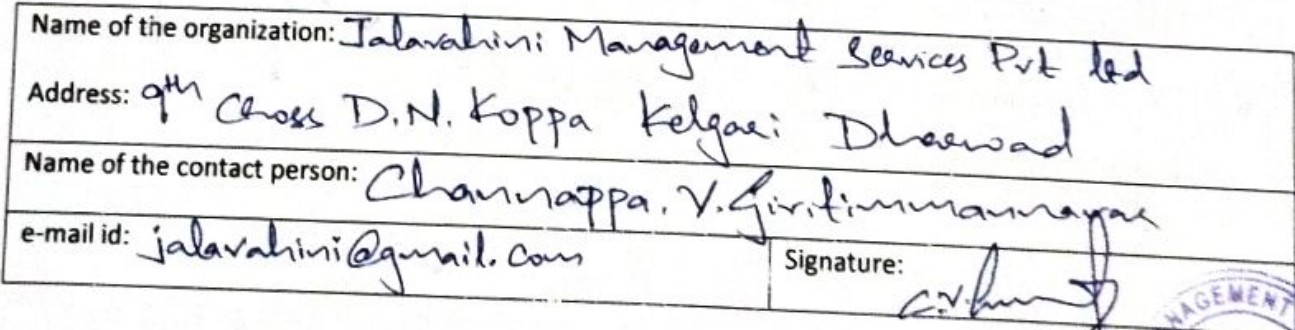 Name of the organization: Jalavahini Management Services Pvt ltd
Address: 9th Cross D.N. Koppa Kelgari Dharwad
Name of the contact person: Channappa. V. Giritimmannavar
e-mail id: jalavahini@gmail.com
Signature:
NAGEMENT